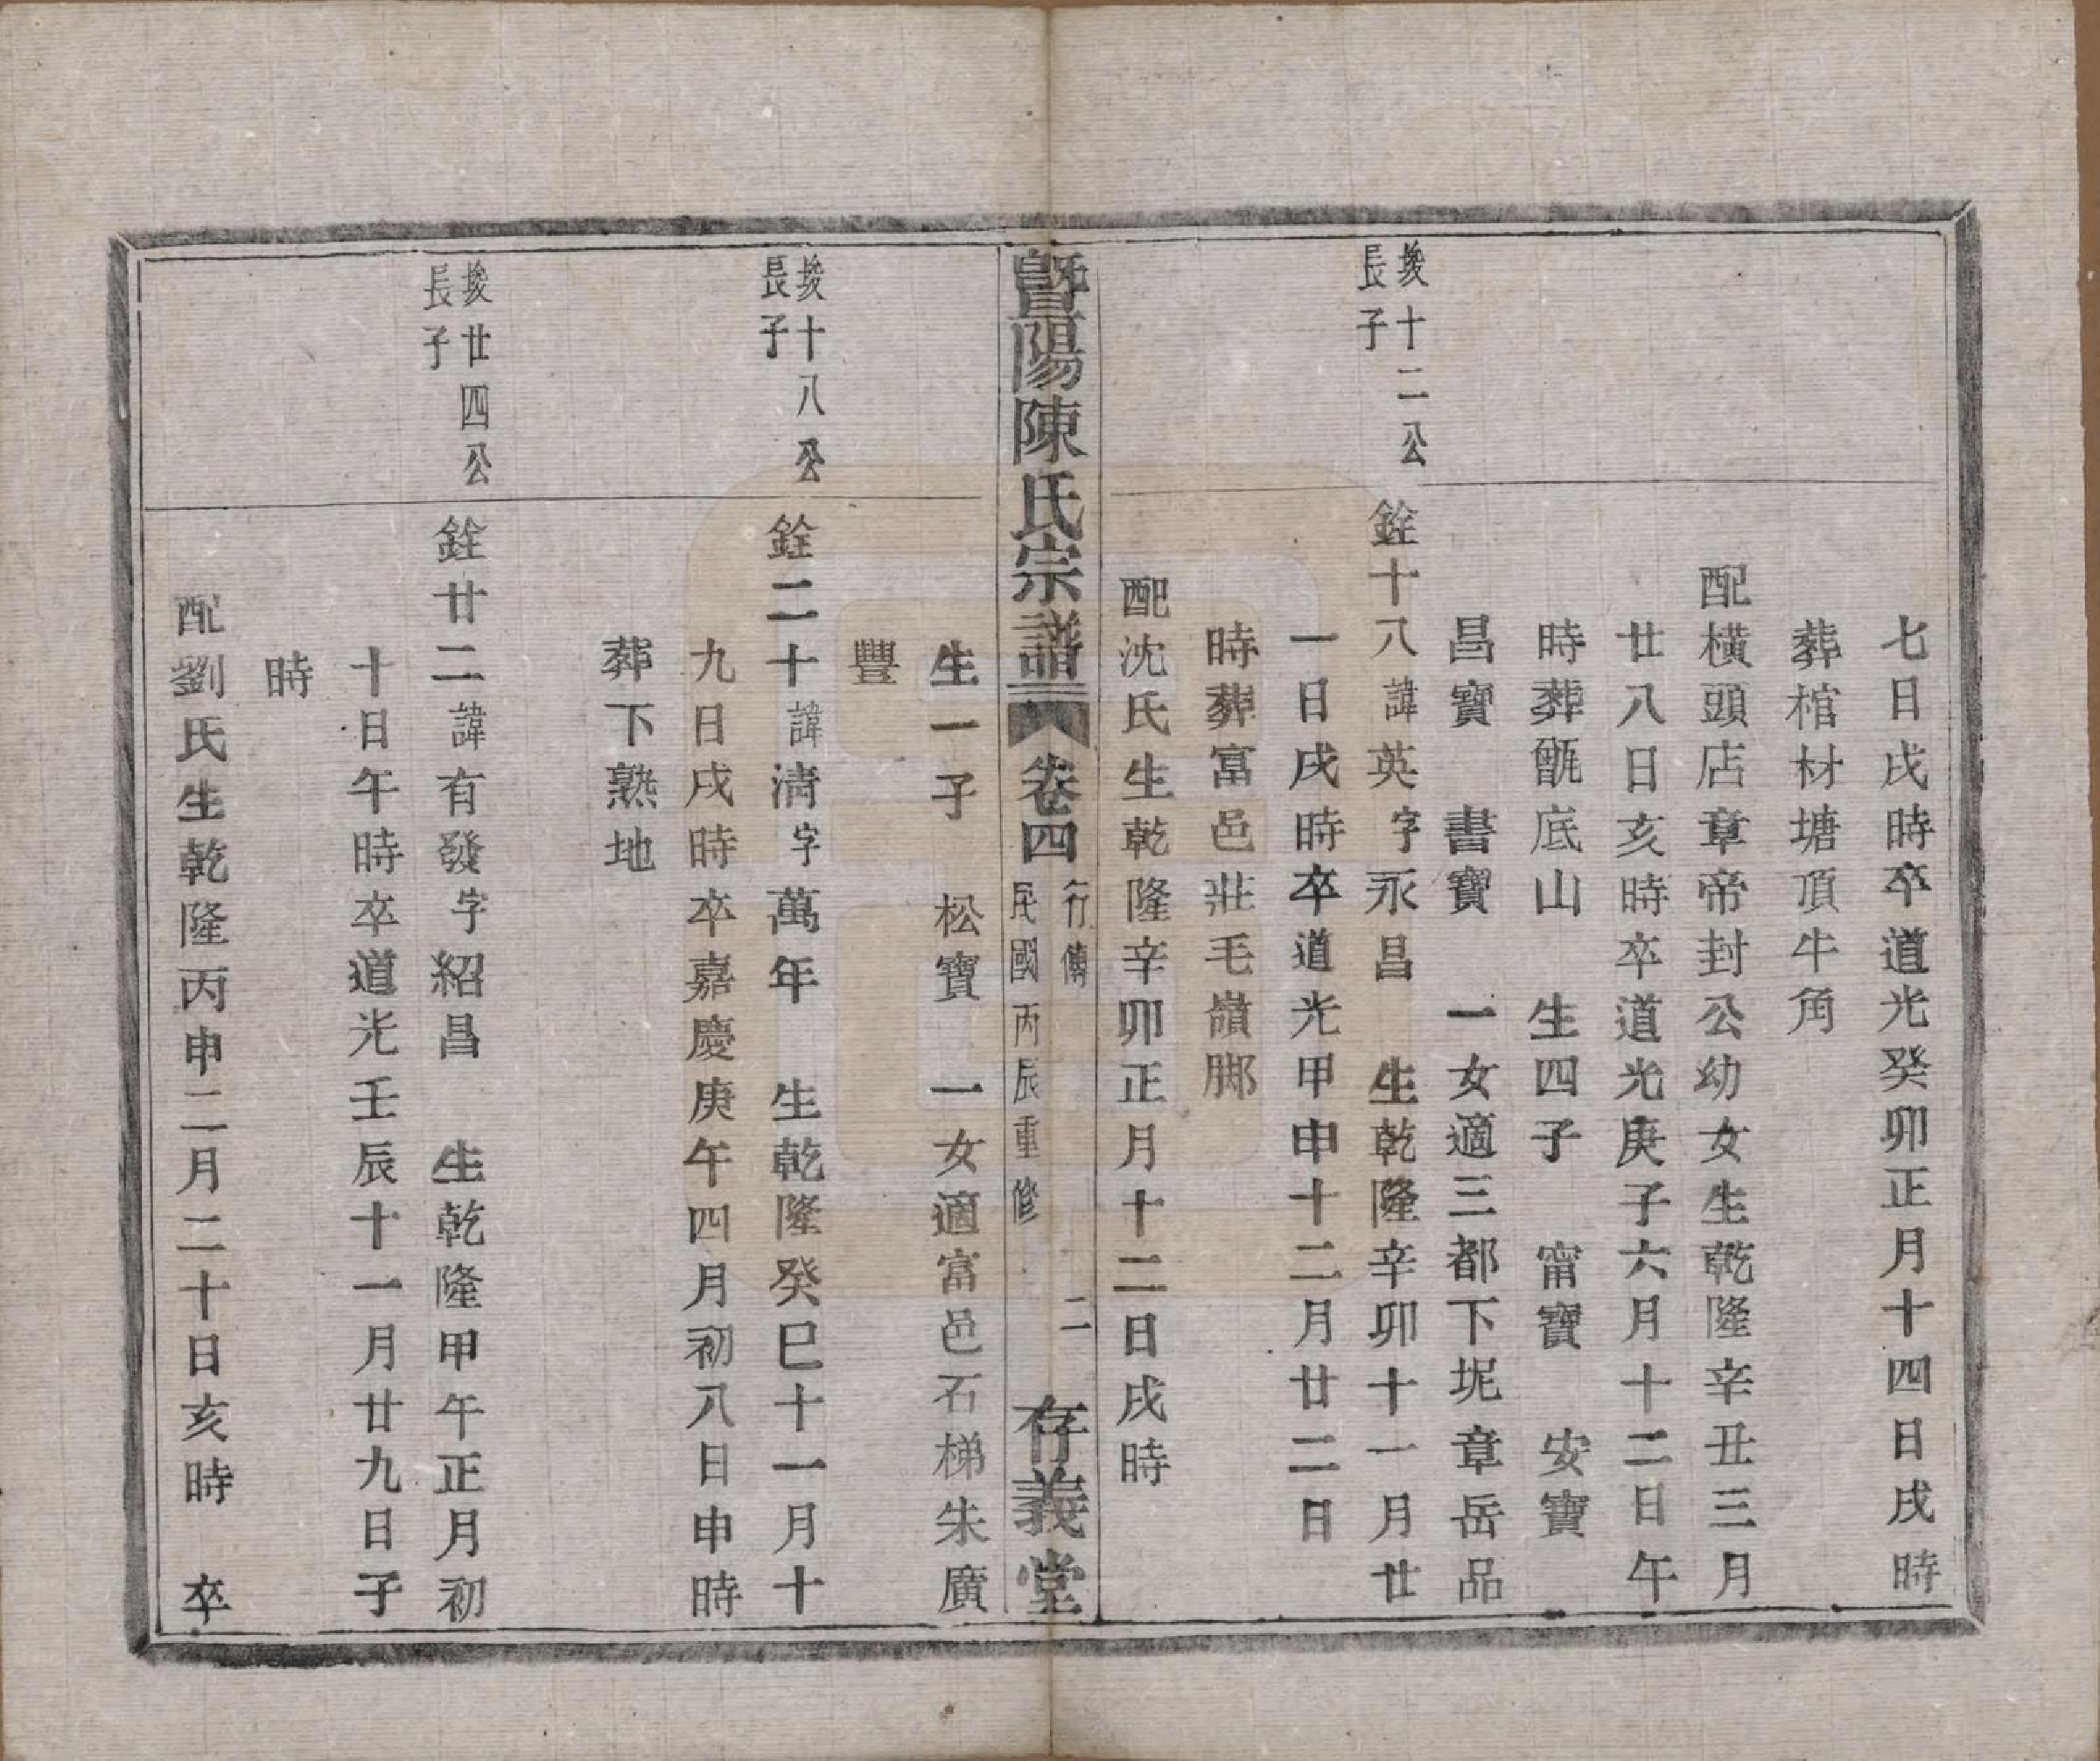 七日戌時卒道光癸卯正月十四日戌時
葬棺材塘頂牛角
配橫頭店章帝封公幼女生乾隆辛丑三月
廿八日亥時卒道光庚子六月十二日午
時葬甑底山　生四子　甯寶　安寶
昌寶　書寶　一女適三都下坭章岳品
十二公
長子
銓十八諱英字永昌　生乾隆辛卯十一月廿
一日戌時卒道光甲申十二月廿二日
時葬富邑莊毛嶺脚
配沈氏生乾隆辛卯正月十二日戌時
暨陽陳氏宗譜　卷四　行傳　民國丙辰重修　二　存義堂
生一子　松寶　一女適富邑石梯朱廣
豐
十八公
長子
銓二十諱清字萬年　生乾隆癸巳十一月十
九日戌時卒嘉慶庚午四月初八日申時
葬下熟地
廿四公
長子
銓廿二諱有發字紹昌　生乾隆甲午正月初
十日午時卒道光壬辰十一月廿九日子
時
配劉氏生乾隆丙申二月二十日亥時　卒